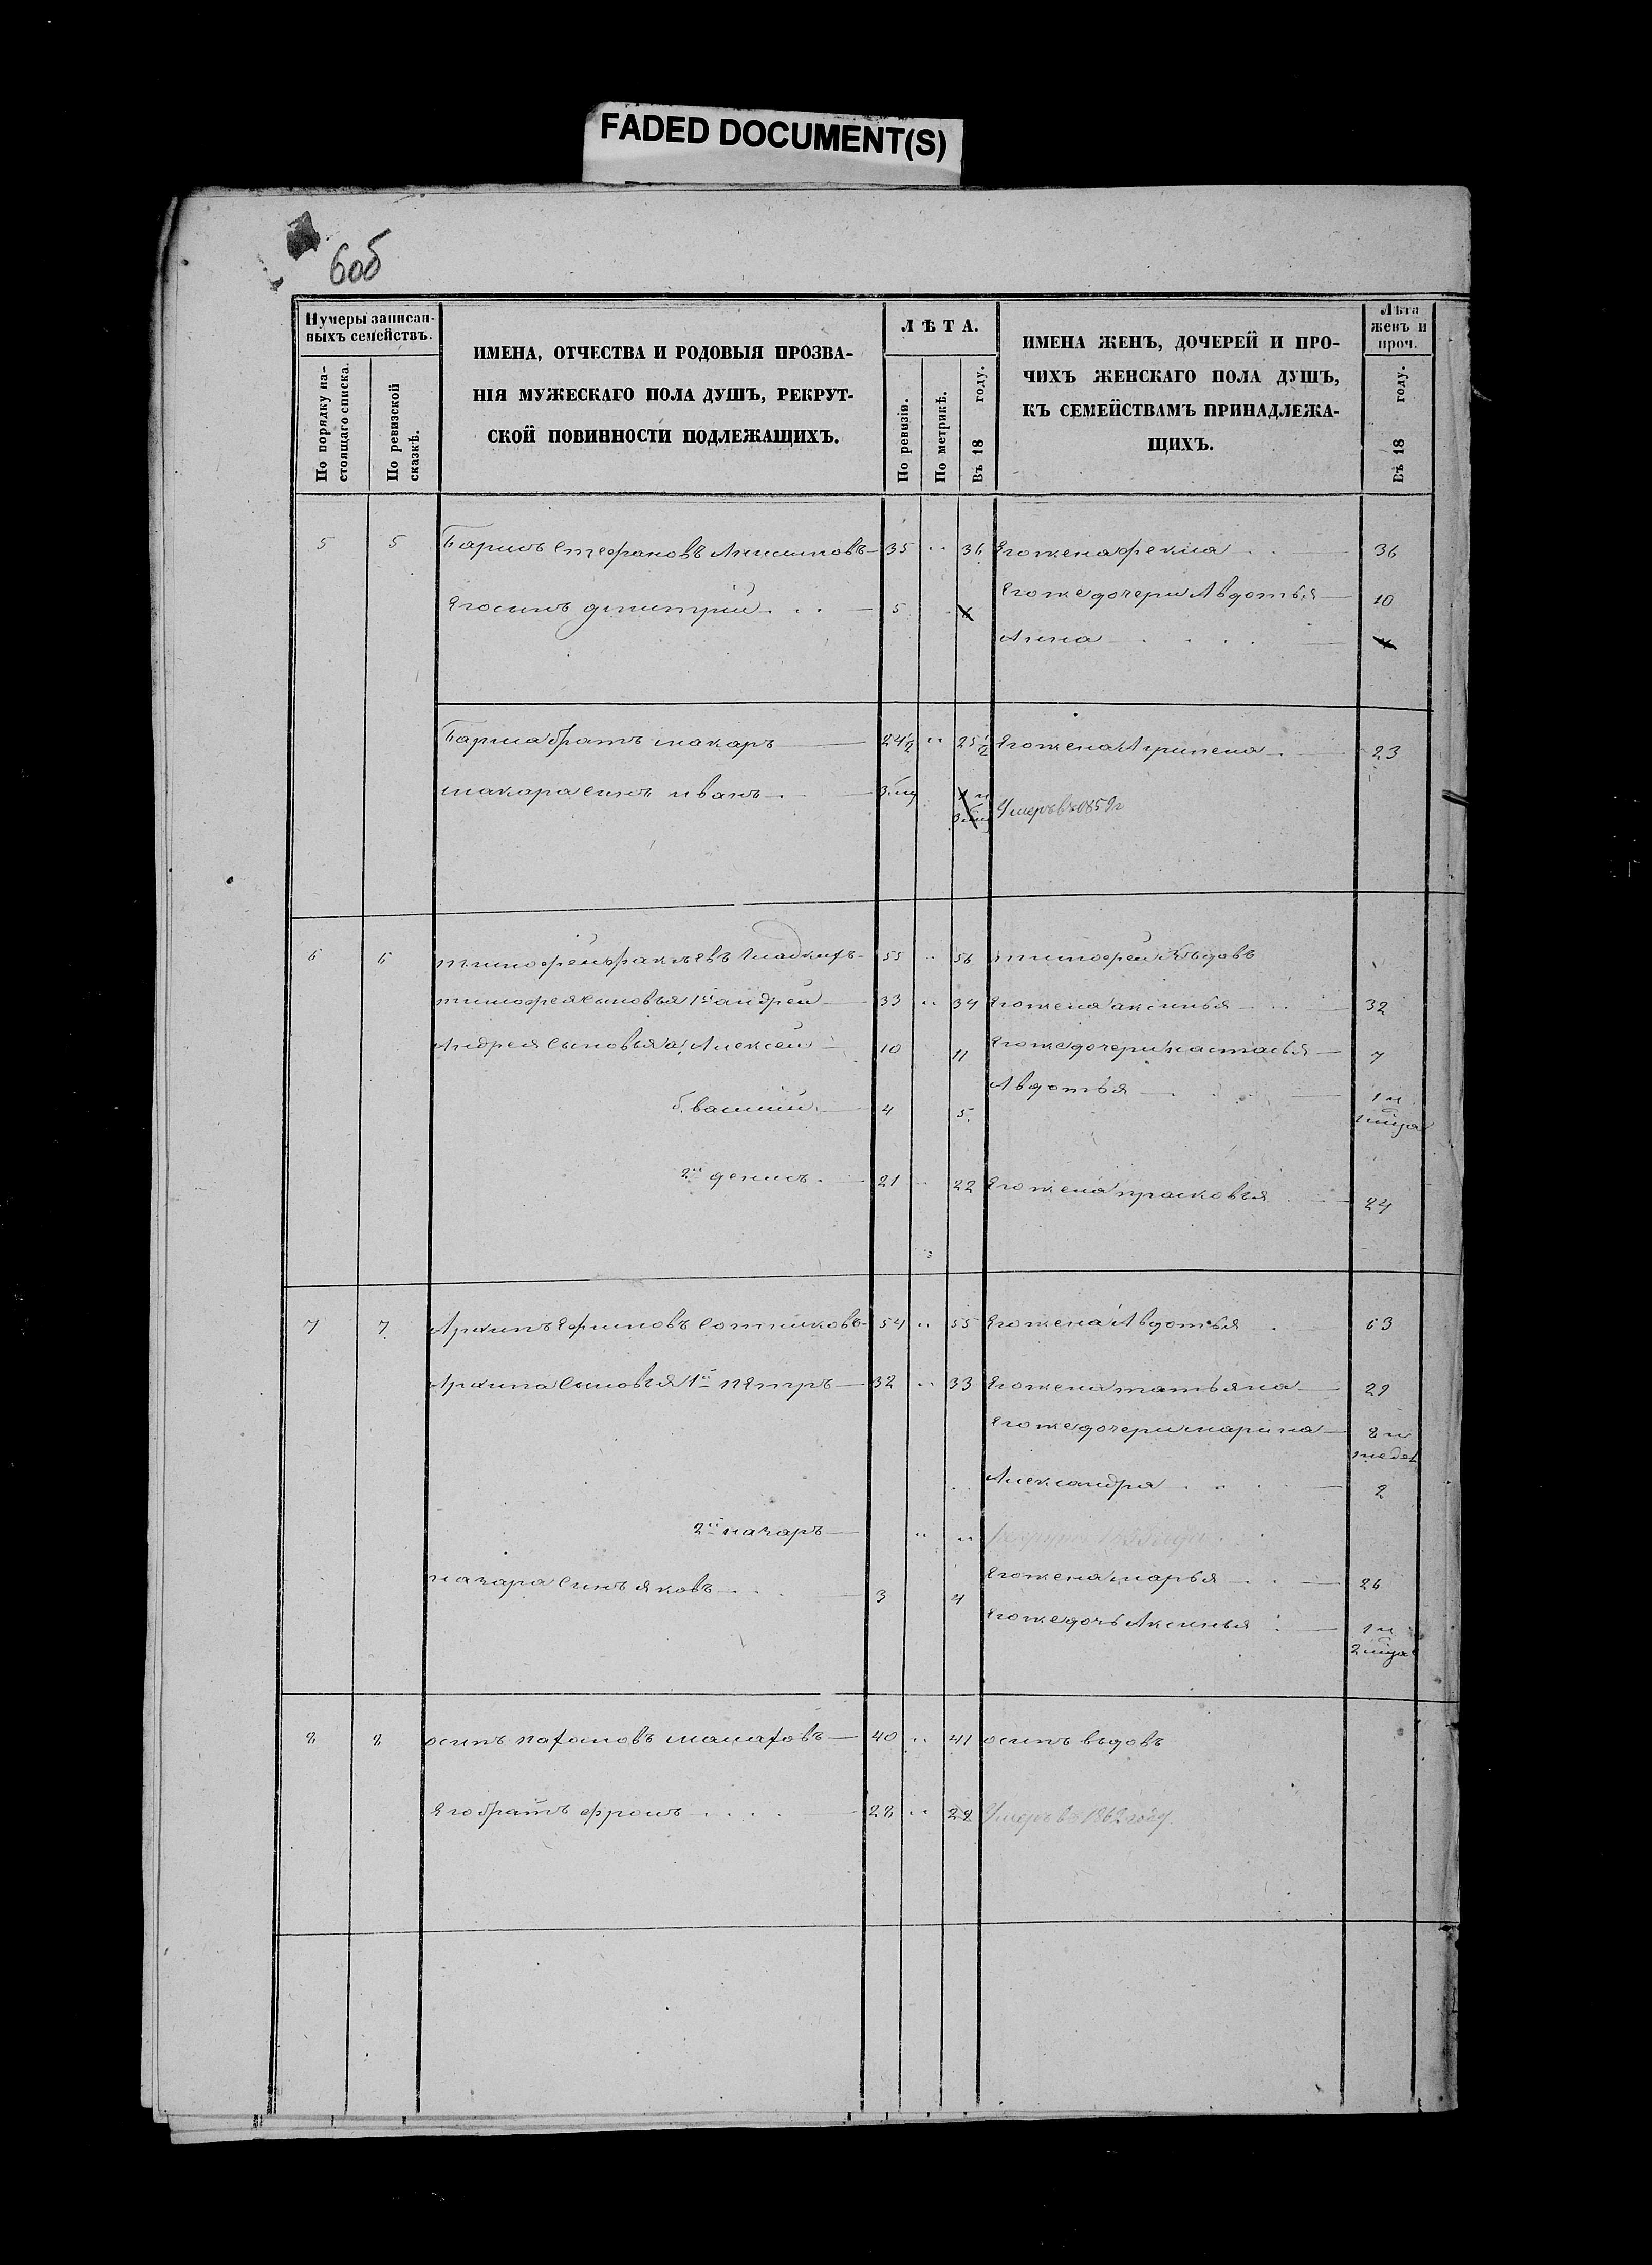 FADED DOCUMENT(S)
6об
Нумеры записан-
ныхъ семействъ.
По порядку на-
стоящаго списка.
По ревизской
сказкѣ.
ИМЕНА, ОТЧЕСТВА И РОДОВЫЯ ПРОЗВА-
НІЯ МУЖЕСКАГО ПОЛА ДУШЪ, РЕКРУТ-
СКОЙ ПОВИННОСТИ ПОДЛЕЖАЩИХЪ.
ЛѢТА.
По ревизіи.
По метрикѣ.
Въ 18 году.
ИМЕНА ЖЕНЪ, ДОЧЕРЕЙ И ПРО-
ЧИХЪ ЖЕНСКАГО ПОЛА ДУШЪ,
КЪ СЕМЕЙСТВАМЪ ПРИНАДЛЕЖА-
ЩИХЪ.
Лѣта
женъ и
проч.
Въ 18 году.
5 5 стефановъ 35 " 36 Его жена фекла 36
Его сынъ дмитрий 5 Его же дочери Авдотья 10
Анна
братъ макаръ 24½ " 25½ Его жена Агрипена 23
макара сынъ иванъ
Умеръ в 1859 г
6 6 тимофей 55 " 56 тимофей вдовъ
тимофея сыновья 1й андрей 33 " 34 Его жена аксинья 32
Андрея сыновья а, Алексей 10 11 Его же дочери настасья 7
Авдотья 1 и
б, василий 4 5
2й денисъ 21 22 Его жена прасковья 24
7 7 Архипъ Ефимовъ сотниковъ 54 " 55 Его жена Авдотья 63
Архипа сыновья 1й петръ 32 " 33 Его жена татьяна 29
Его же дочери марина 8 и
недел
Александра 2
2й назаръ " "
назара сынъ яковъ 3 4 Его жена марья 26
Его же дочь Аксинья 1 и
8 8 осипъ 40 " 41 осипъ вдовъ
Его братъ фролъ 28 " 29 Умеръ въ 1862 году